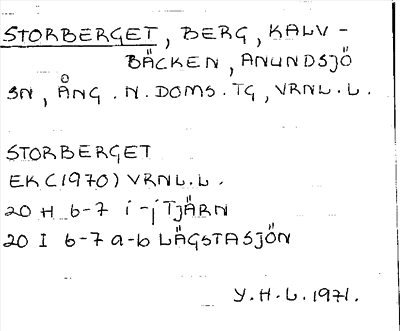 STORBERGET, BERG, KALV-
BÄCKEN, ANUNDSJÖ
SN, ÅNG. N. DOMS. TG, VRNL. L.
STORBERGET
EK (1970) VRNL. L.
20 H 6-7 i-j TJÄRN
20 I 6-7 a-b LÄGSTASJÖN
Y. H. L. 1971.